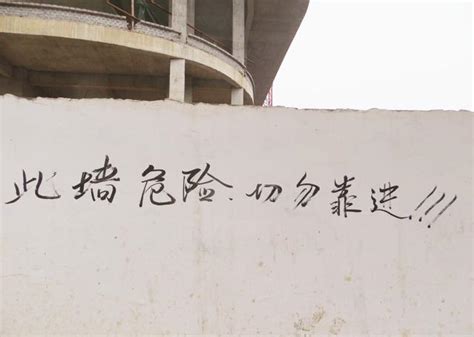 此墙危险.切勿靠进!!!